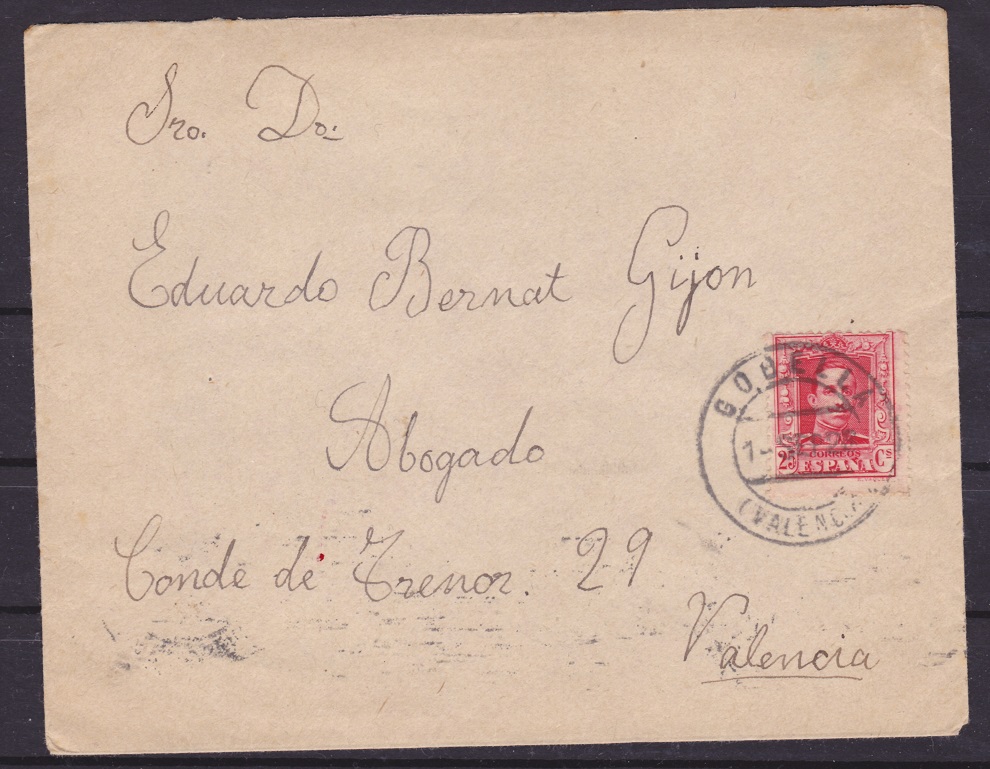 Sro. Do.
Eduardo Bernat Gijon
Abogado
Conde de Trenor. 29
Valencia
GODELLA
(VALENCIA)
CORREOS
25 ESPAÑA Cs